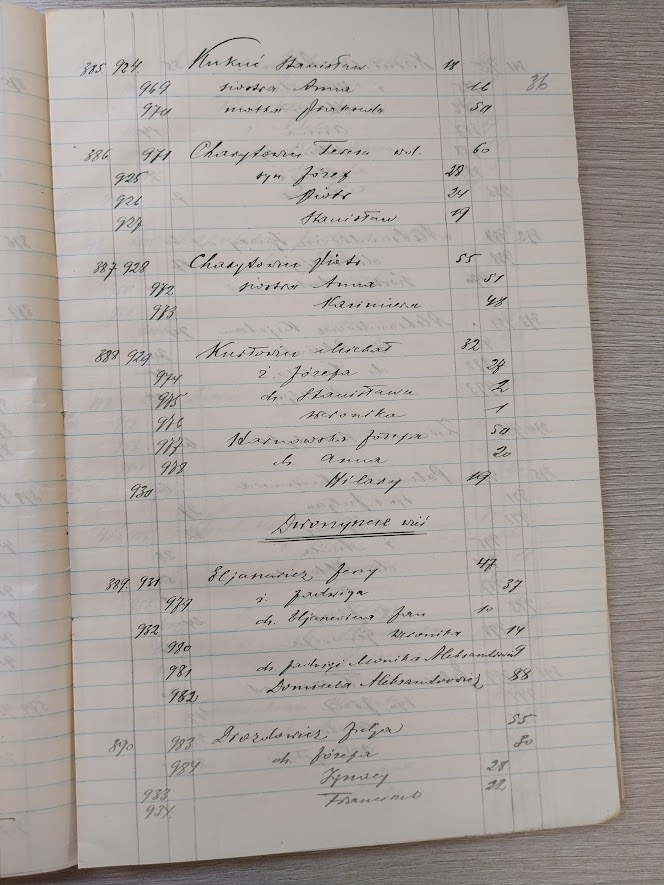 36
385 924 Kukuć Stanisław 18
969 siostra Anna 16
970 matka Prakseda 50
386 971 Charytowicz Teresa wd. 60
925 syn Józef 28
926 Piotr 24
927 Stanisław 19
387 928 Charytowicz Piotr 55
972 siostra Anna 51
973 Kazimiera 48
388 929 Michał 32
974 ż. Józefa 28
975 ch. Stanisława 2
976 Weronika 1
977 Józefa 50
978 ch. Anna 20
930 Hilary 19
wieś
389. 931 Eljaniewicz Jerzy 47
979 ż. Jadwiga 37
932 ch. Eljaniewicz Jan 10
980 Weronika 14
981 ch. Jadwigi Monika Aleksandrowicz 9
982 Domicela Aleksandrowicz 88
890 983 Drozdowicz Julja 55
984 ch. Józefa 30
933 Ignacy 28
934 Franciszek 22